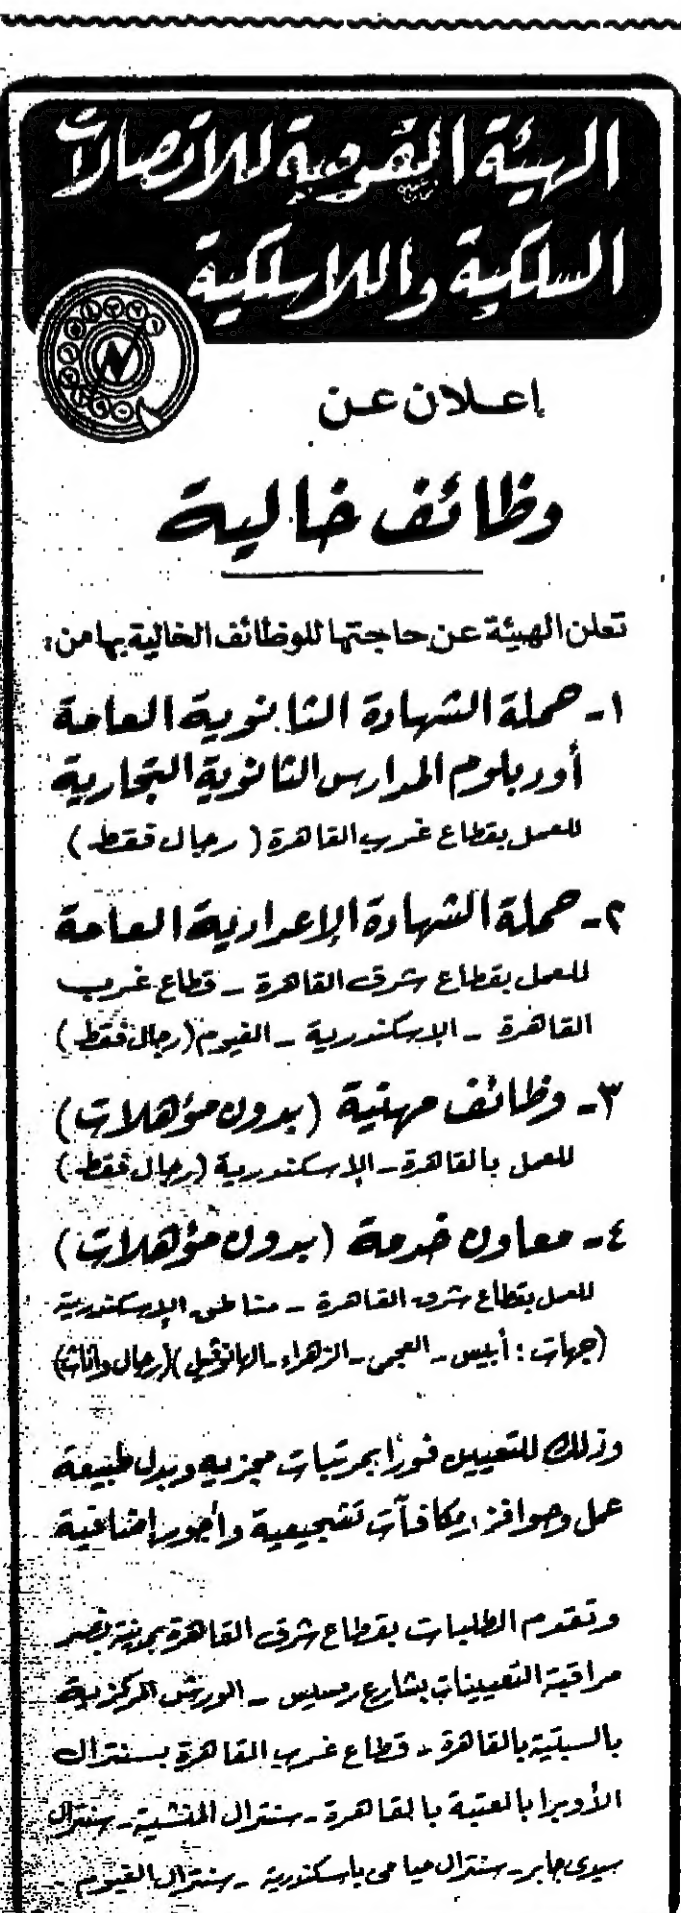 الهيئة القومية للاتصالات
السلكية واللاسلكية
إعلان عن
وظائف خالية
تعلن الهيئة عن حاجتها للوظائف الخالية بها من:
١- حملة الشهادة الثانوية العامة
أو دبلوم المدارس الثانوية التجارية
للعمل بقطاع غرب القاهرة (رجال فقط)
٢- حملة الشهادة الإعدادية العامة
للعمل بقطاع شرق القاهرة - قطاع غرب
القاهرة - الإسكندرية - الفيوم (رجال فقط)
٣- وظائف مهنية (بدون مؤهلات)
للعمل بالقاهرة - الإسكندرية (رجال فقط)
٤- معاون خدمة (بدون مؤهلات)
للعمل بقطاع شرق القاهرة - مناطق الإسكندرية
(جهات: أبيس - العجمى - الزهراء - الهانوفيل) (رجال وإناث)
وذلك للتعيين فوراً بمرتبات مجزيه وبدل طبيعة
عمل وحوافز ومكافآت تشجيعية وأجور إضافية
وتقدم الطلبات بقطاع شرق القاهرة بمدينة نصر
مراقبة التعيينات بشارع رمسيس - الورش المركزية
بالسبتية بالقاهرة - قطاع غرب القاهرة بسنترال
الأوبرا بالعتبة بالقاهرة - سنترال المنشية - سنترال
سيدى جابر - سنترال ميامى باسكندرية - سنترال الفيوم -